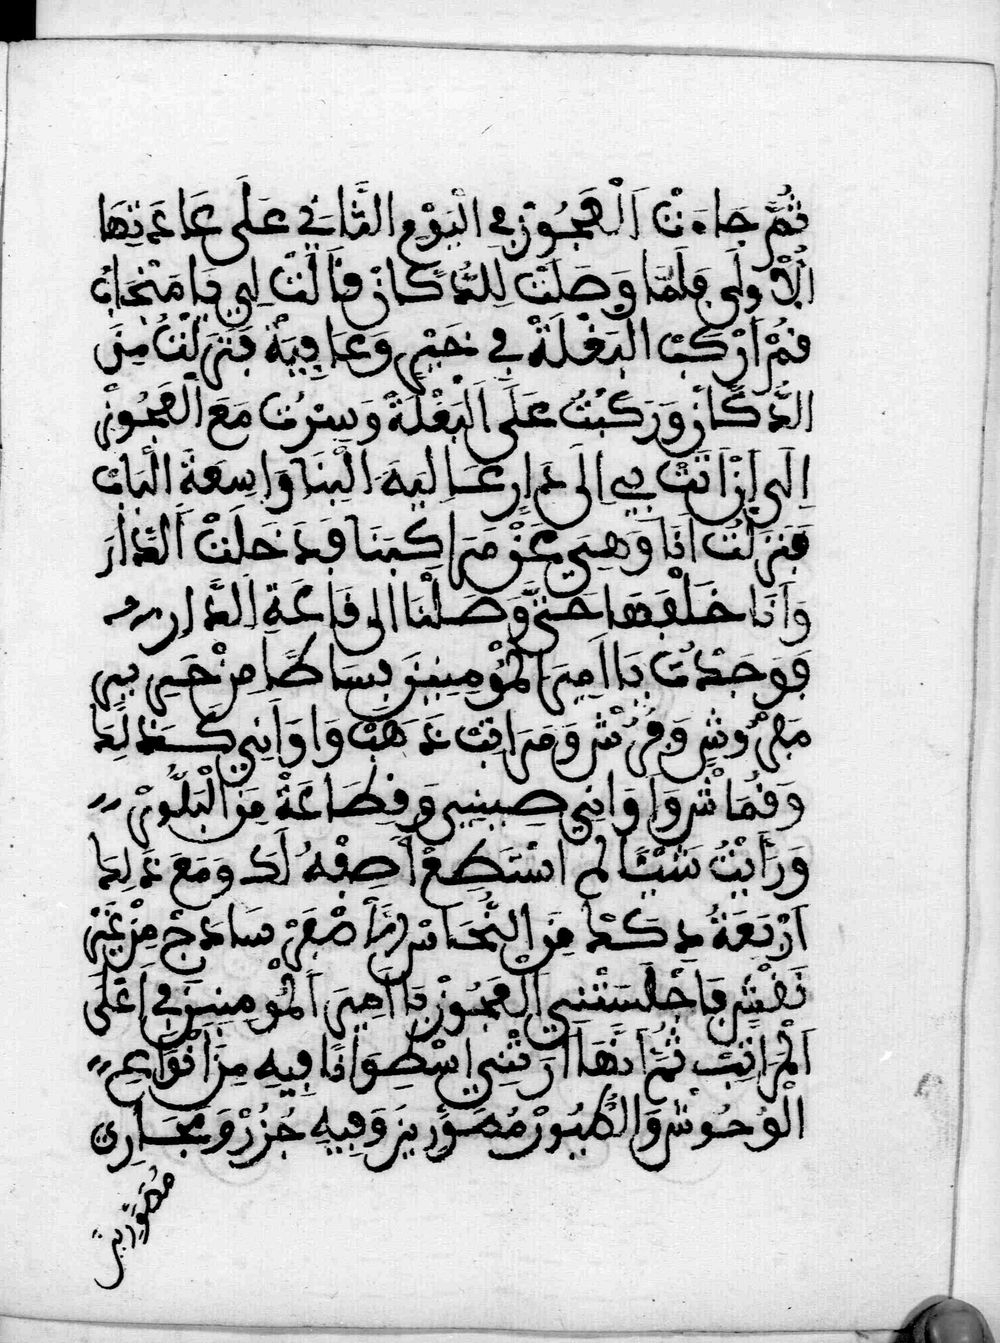 ثُمَّ جاءت الْعجُوز في الْيَوْمِ الثَّاني عَلَى عَادَتِهَا
الْأُولَى فلَمَّا وَصَلَتْ لِلدُّكَّانْ قالَتْ لِي يَا مَنْجَابُ
قُمْ ارْكَبْ الْبَغْلَةْ في خَيْرٍ وَعَافِيَةْ فَنَزلْتُ مِنَ
الدُّكَّانْ وَرَكَبْتُ عَلَى الْبَغْلَةْ وَسِرْتُ مَعَ الْعجُوزْ
إلَى إنْ اَتَتْ بِي اِلَى دَارِ عَالِيَةَ الْبِنَا وَاسِعَةَ الْبَابْ
فنَزلْتُ اَنَا وَهِيَ عَنْ مَرَاكِبنَا وقدْ دَخَلَتْ الدَّارَ
وَأنَا خَلْفهَا حَتَّى وَصَلْنَا الى قَاعَةِ الدَّارِ
فوَجَدْتُ يَا امِيرَ الْمُؤْمِنِينَ بِسَاطًا مِنْ حَرِيرٍ
مَفْرُوشٍ وَفُرُشْ وَمَرَاتِبْ ذَهَبْ وَاوَانِي كَذلِكَ
وَقُمَاشْ وَاوَانِي صِينِي وَقطَاعَةْ مِنَ الْبَلُّورْ
وَرَأيْتُ شَيْئًا لم اسْتَطِعْ أصِفْهُ لَكَ وَمَعَ ذلِكَ
اَرْبَعَةُ دِكَكْ مِنَ النُّحَاسْ الأصْفَرْ سَادجْ مِنْ غَيْرِ
نَقْشٍ فاجْلَسَتْنِي الْعجُوزْ يَا اَمِيرَ الْمُؤمِنِينْ في اعْلَى
الْمرَاتِبْ ثُمَّ انهَا اَرَتْنِي اسْطِوَانًا فِيهِ مِنْ أنْوَاعِ
الْوُحُوشْ وَالطُّيُورْ مُصَوَّرِينَ وَفِيهِ جُزُرْ وَمَجَارِي
مُصَوَّرِين